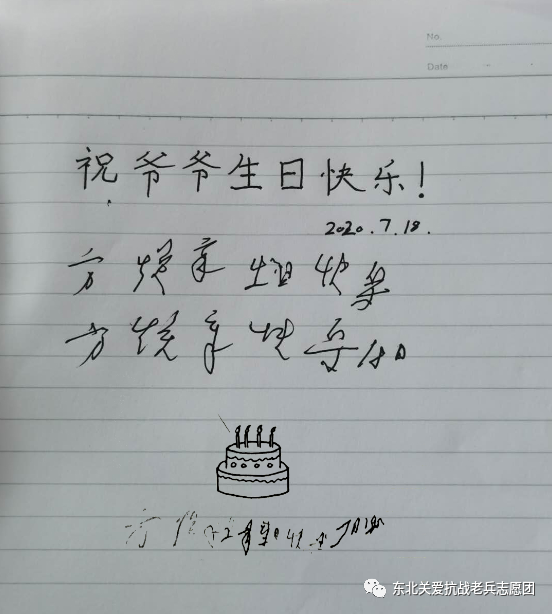 No.
Date
祝爷爷生日快乐!
2020.7.18.
方焕章生日快乐
方焕章快乐
方
东北关爱抗战老兵志愿团